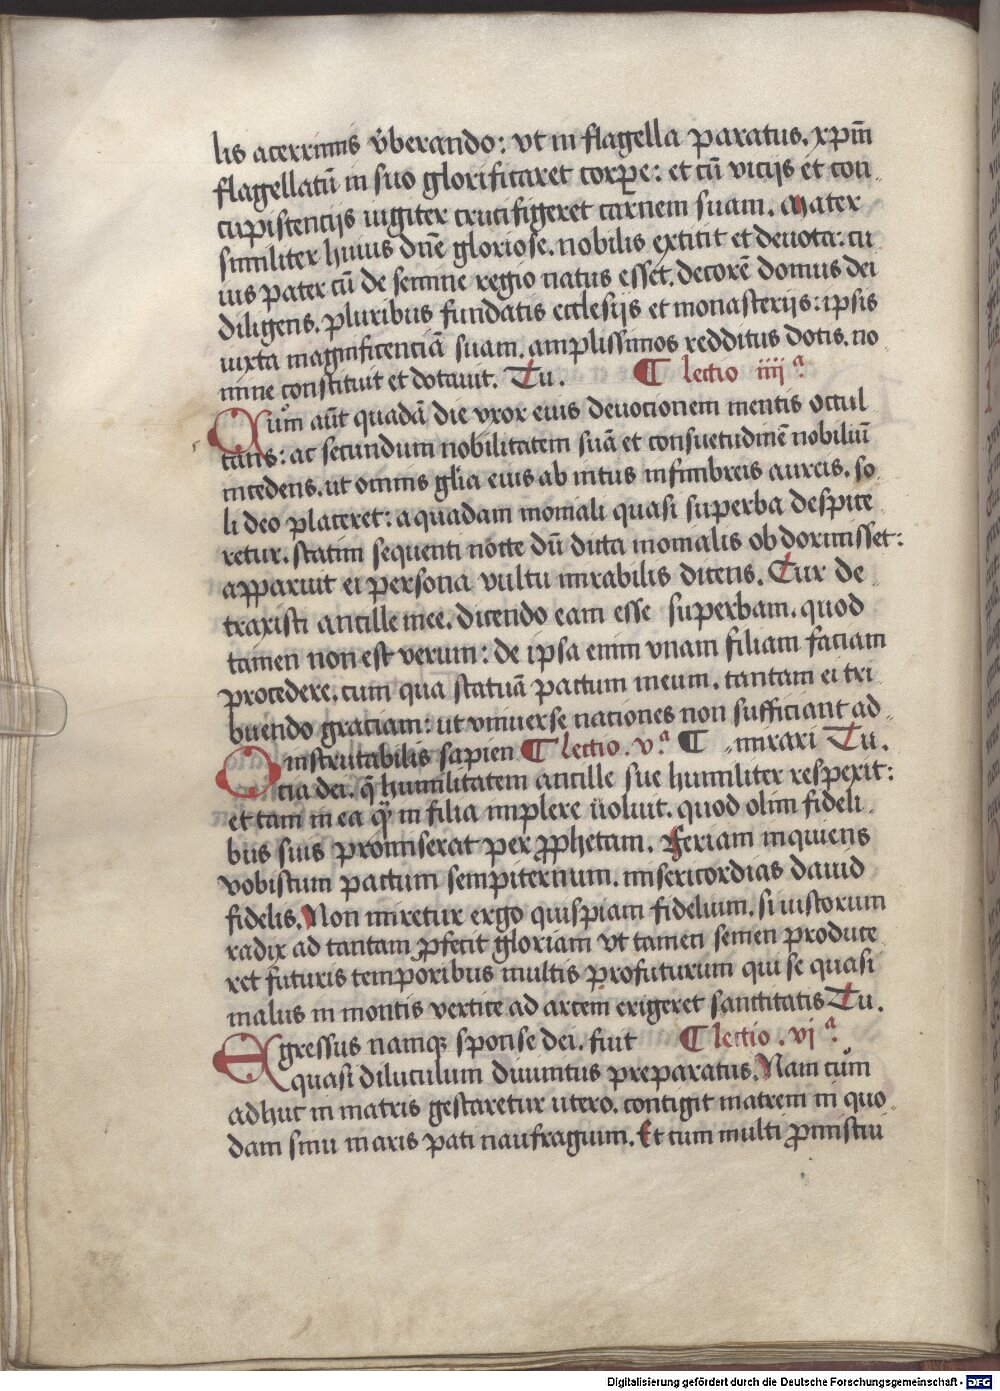 lis acerrimis v̓berando: vt in flagella paratus. xp̄m̄
flagellatū in suo glorificaret corꝑe: et cū vicijs et con
cupiscencijs iugiter crucifigeret carnem suam. Mater
similiter huius dn̄e gloriose. nobilis extitit et deuota: cu
ius pater cū de semine regio natus esset. decorē domus dei
diligens. pluribus fundatis ecclesijs et monasterijs: ipsis
iuxta magnificenciā suam. amplissimos redditus dotis. no
mine constituit et dotauit. Tu. ¶ lectio iiijª.
Cum aūt quadā die vxor eius deuocionem mentis occul
tans: ac secundum nobilitatem suā et consuetudinē nobiliū
incedens. ut omnis gl̄ia eius ab intus in fimbreis aureis. so
li deo placeret: a quadam moniali quasi superba despice
retur. statim sequenti nocte dū dicta monialis obdormisset:
apparuit ei persona vultu mirabilis dicens. Cur de
traxisti ancille mee. dicendo eam esse superbam. quod
tamen non est verum: de ipsa enim vnam filiam faciam
procedere. cum qua statuā pactum meum. tantam ei tri
buendo graciam: ut vniuerse naciones non sufficiant ad
O inscrutabilis sapien ¶ lectio. v.ª ¶ mirari Tu.
cia dei. q̄ humilitatem ancille sue humiliter respexit:
et tam in ea qm̄ in filia implere uoluit. quod olim fideli
bus suis promiserat per ꝓphetam. Feriam inquiens
vobiscum pactum sempiternum. misericordias dauid
fidelis. Non miretur ergo quispiam fidelium. si iustorum
radix ad tantam ꝓfecit gloriam vt tamen semen produce
ret futuris temporibus multis profuturum qui se quasi
malus in montis vertice ad arcem erigeret sanctitatis Tu.
Egressus namqꝫ sponse dei. fuit ¶ lectio. vjª.
quasi diluculum diuinitus preparatus. Nam cum
adhuc in matris gestaretur utero. contigit matrem in quo
dam sinu maris pati naufragium. Et cum multi ꝓmiscui